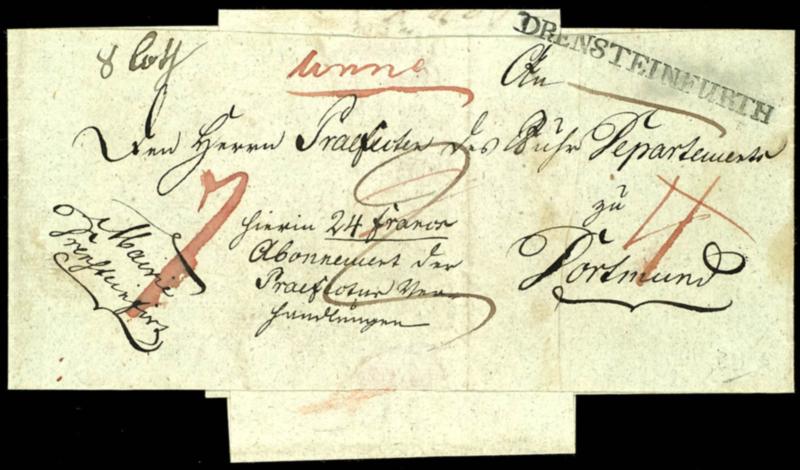 DRENSTEINFURTH
8 Loth
Unna
An
Den Herrn Praefecten des Ruhr Departements
zu
Dortmund
hierin 24 Francs
Abonnement der
Praefectur Ver-
handlungen
Mairie
Drensteinfurt
7
2
4